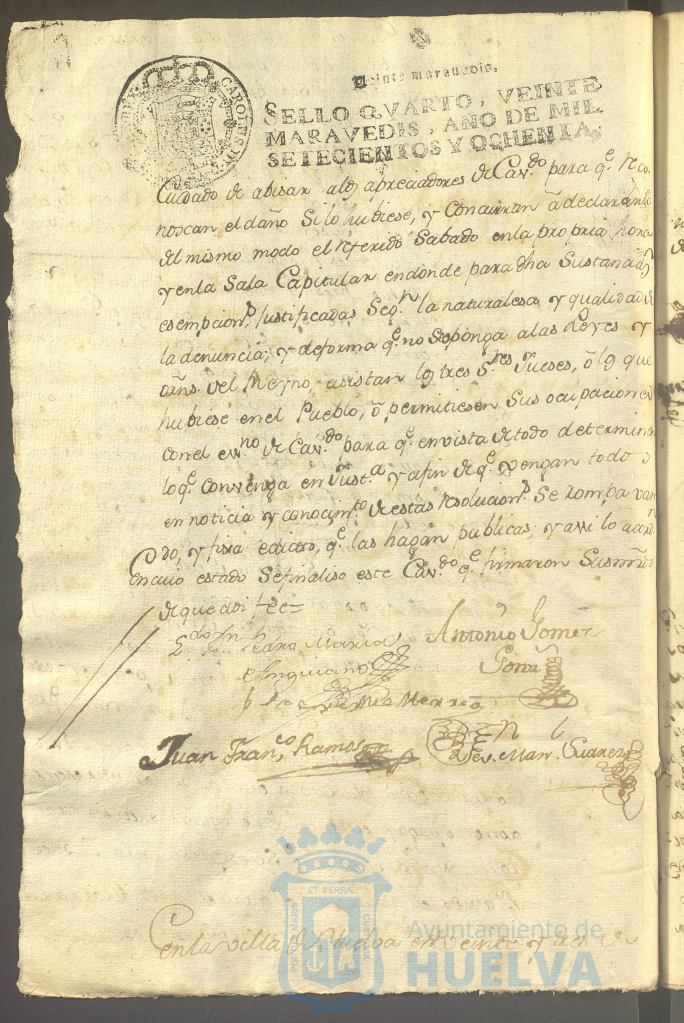 Veinte maravedis.
SELLO QVARTO, VEINTE
MARAVEDIS, AÑO DE MIL
SETECIENTOS Y OCHENTA.
CAROLUS III
Cuidado de abisar a los apreciadores de Cav.do para q.e reco-
noscan el daño Si lo hubiese, y Concurran à declararlo
del mismo modo el referido Sabado en la propria hora
y en la Sala Capitular en donde para dha Sustancias
esempcion.s Justificadas Seg.n la naturalesa y qualidad de
la denuncia; y de forma q.e no Se oponga a las Leyes y
orñs del Reyno, asistan los tres S.res Jueses, ò los que
hubiese en el Pueblo, ò permitiesen Sus ocupaciones
con el es.no de Cav.do para q.e en vista de todo determinen
lo q.e Convenga en Just.a y afin de q.e vengan todos
en noticia y conocim.to de estas resolucion.s Se rompa van
do, y fixa edicto, q.e las hagan publicas; y assi lo acord
En cuio estado Se finaliso este Cav.do q.e firmaron Sus mrds
de que doi fee=
Pedro Maria Antonio Gomez
Anguiano
Juan Fran.co Ramos Man. Suarez
En la villa de Huelva en veinte y
PORTUS MARIS ET TERRÆ CUSTODIA
Ayuntamiento de
HUELVA